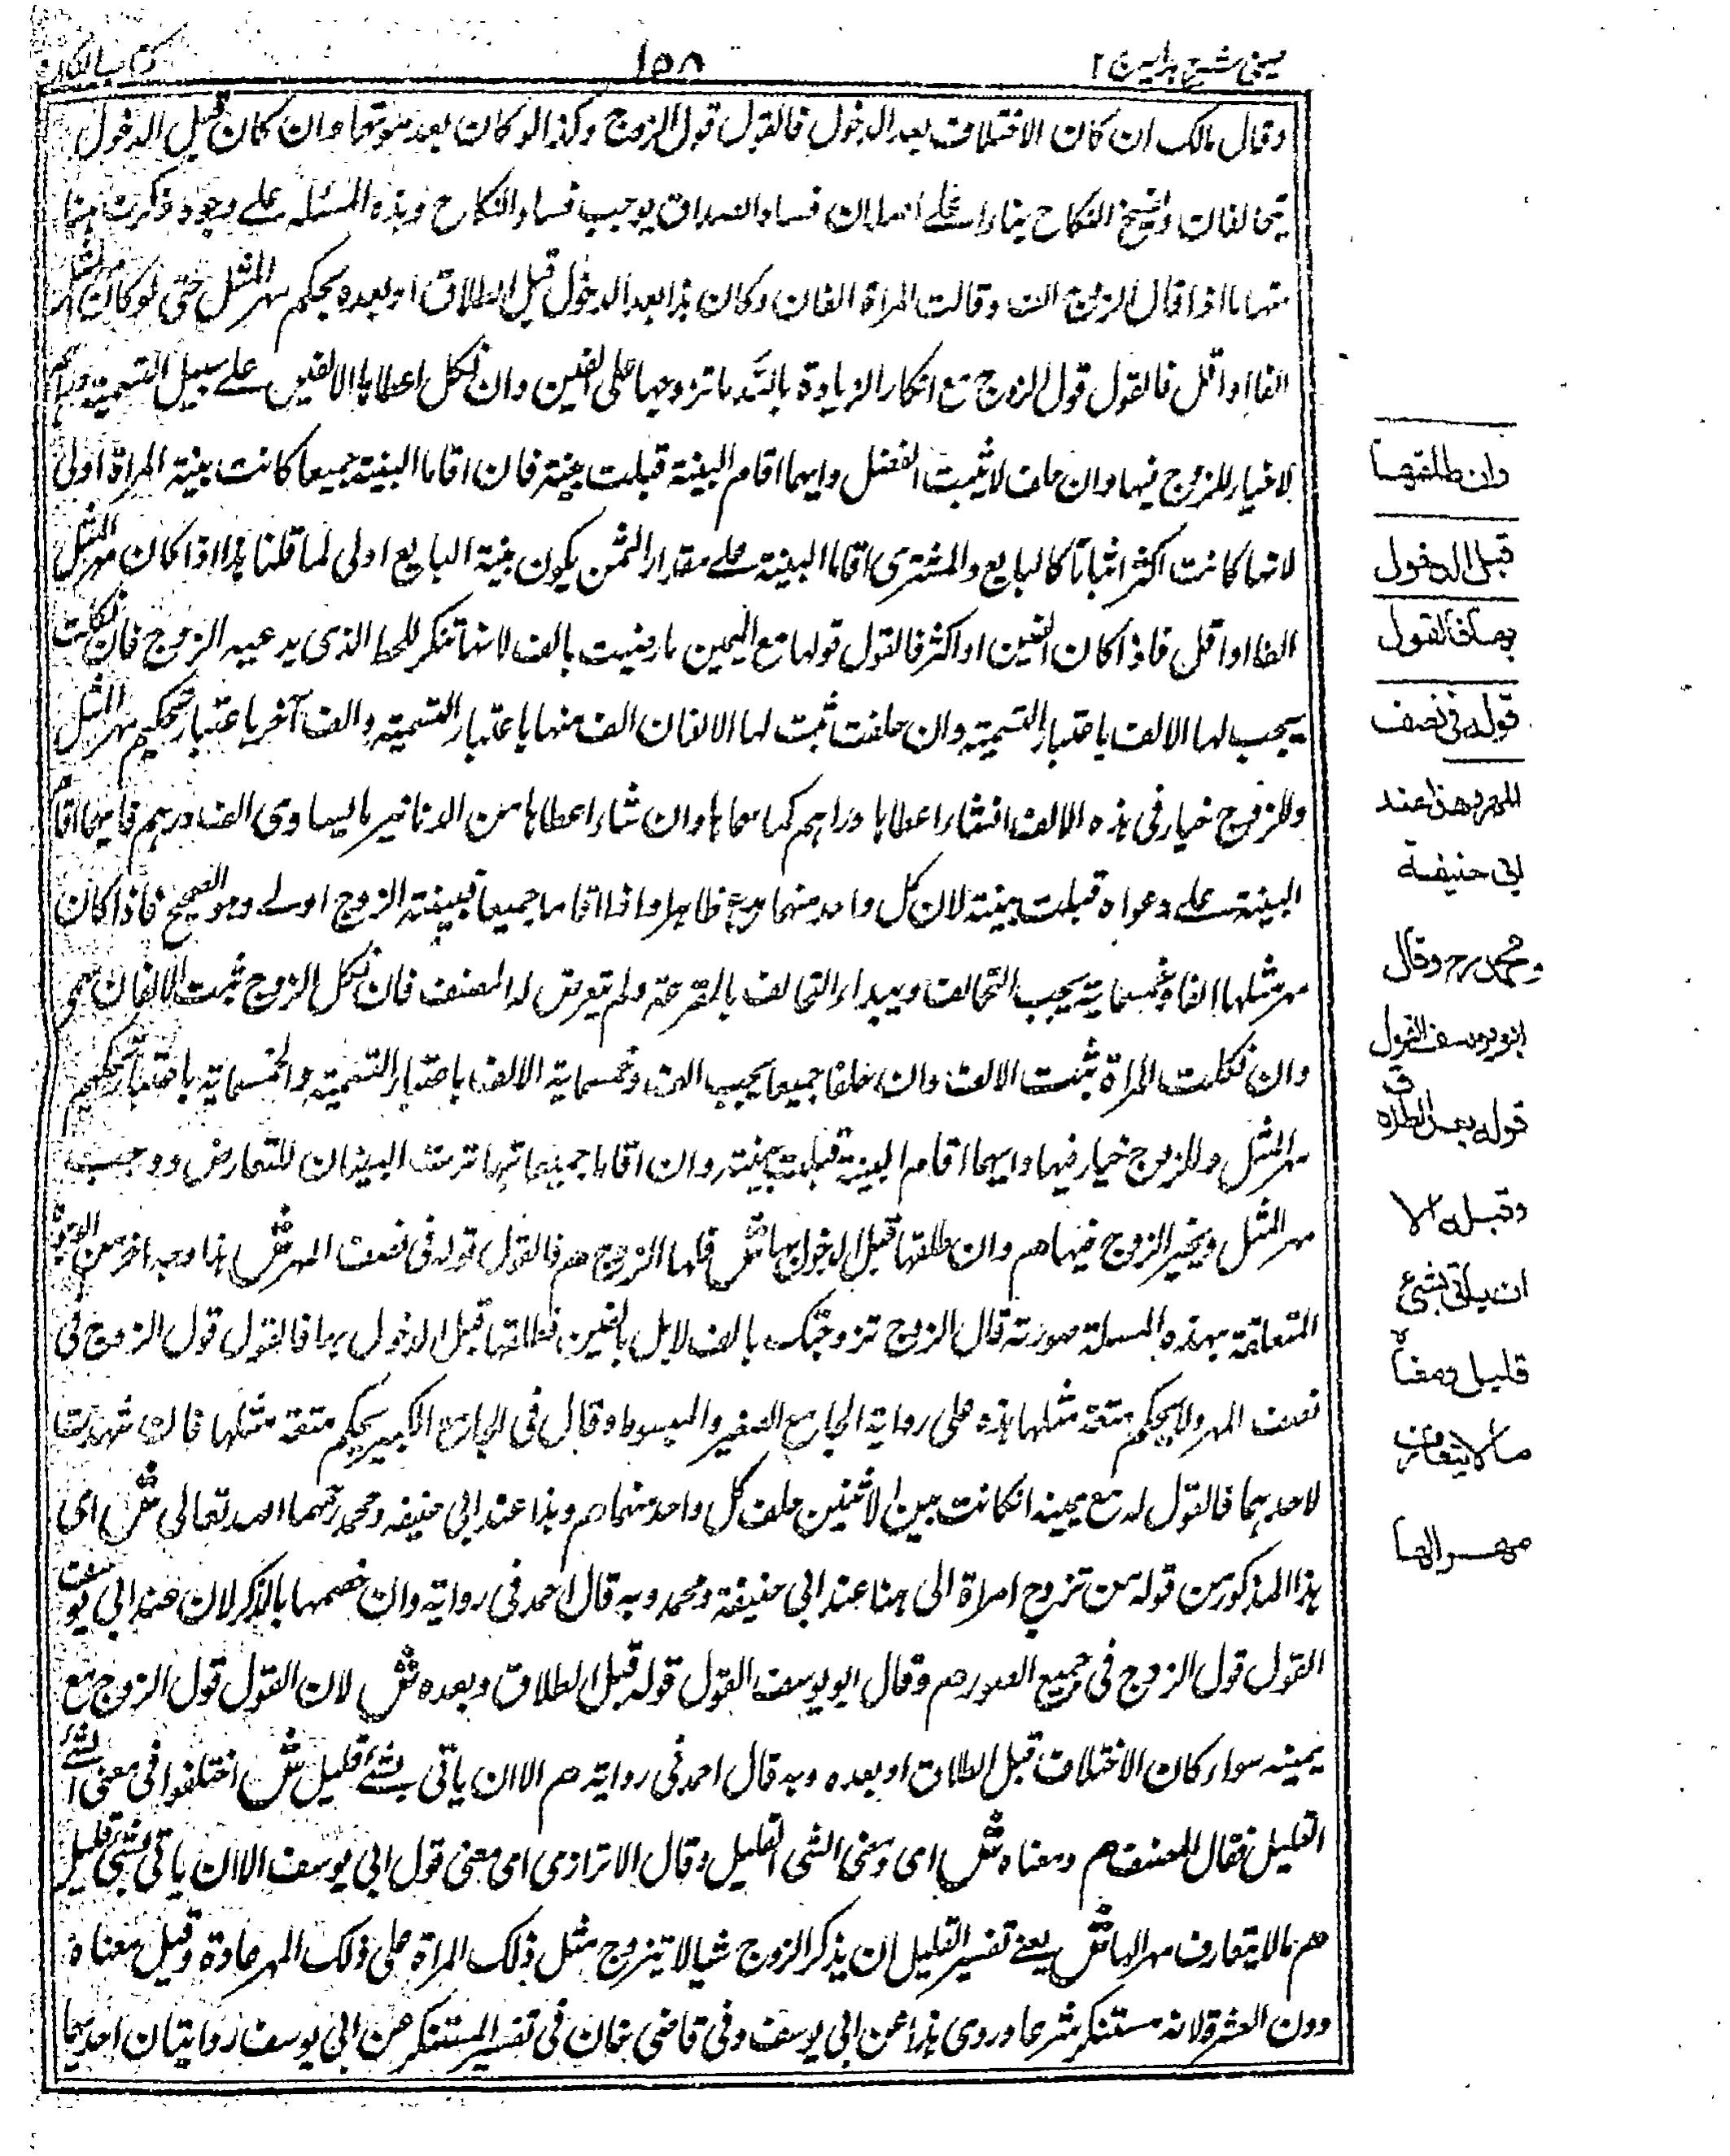 عینی شرح ہدایہ ج ٢
١٥٨
کتاب النکاح
وقال مالک ان کان الاختلاف بعد الدخول فالقول قول الزوج وکذا لو کان بعد موتھا وان کان قبل الدخول
یتحالفان وفسخ النکاح بناء علے اصلہ ان فساد الصداق یوجب فساد النکاح وہذہ المسئلہ علے وجوہ ذکرت ہنا
منہا ما اذا قال الزوج الف وقالت المراۃ الفان وکان ہذا بعد الدخول قبل الطلاق او بعدہ یحکم مہر المثل حتی لو کان مہر المثل
الفا او اقل فالقول قول الزوج مع انکار الزیادۃ باللہ ما تزوجہا علی الفین وان نکل اعطاہا الالفین علے سبیل التسمیۃ
لا خیار للزوج فیہا وان حلف لا یثبت الفضل وایہما اقام البینۃ قبلت بینتہ فان اقاما البینۃ جمیعا کانت بینۃ المراۃ اولی
لانہا کانت اکثر اثباتا کالبایع والمشتری اقاما البینۃ علے مقدار الثمن یکون بینۃ البایع اولی لما قلنا ہذا اذا کان مہر المثل
الفا او اقل فاذا کان الفین او اکثر فالقول قولہا مع الیمین ما رضیت بالف لانہا تنکر للحط الذی یدعیہ الزوج فان نکلت
یجب لہا الالف باعتبار التسمیۃ وان حلفت ثبت لہا الالفان الف منہا باعتبار التسمیۃ والف آخر باعتبار تحکیم مہر المثل
وللزوج خیار فی ہذہ الالف انشاء اعطاہا دراہم کما سماہا وان شاء اعطاہا من الدنانیر ما یساوی الف درہم فایہما اقام
البینۃ علے دعواہ قبلت بینتہ لان کل واحد منہما مدع ظاہرا واذا اقاما جمیعا فبینۃ الزوج اولے وہو الصحیح فاذا کان
مہر مثلہا الفا وخمسمایۃ یجب التحالف ویبداء التحالف بالقرعۃ ولم یتعرض لہ المصنف فان نکل الزوج ثبت الالفان
وان نکلت المراۃ ثبت الالف وان حلفا جمیعا یجب الف وخمسمایۃ الالف باعتبار التسمیۃ والخمسمایۃ باعتبار تحکیم
مہر المثل وللزوج خیار فیہا وایہما اقام البینۃ قبلت بینتہ وان اقاما جمیعا تہاترت البینتان للتعارض ووجب
مہر المثل ویخیر الزوج فیہا ھم وان طلقہا قبل الدخول بہا ش قلہا الزوج ھم فالقول قولہ فی نصف المہر ش ہذا وجہ اخر من الوجوہ
المتعلقۃ بہذہ المسلۃ صورتہ قال الزوج تزوجتک بالف لا بل بالفین فطلقہا قبل الدخول بہا فالقول قول الزوج فی
نصف المہر ولا یحکم متعۃ مثلہا ہذہ علی روایۃ الجامع الصغیر والمبسوط وقال فی الجامع الکبیر یحکم متعۃ مثلہا فان شہدت
لاحدہما فالقول لہ مع یمینہ انکانت بین الاثنین حلف کل واحد منہما ھم وہذا عند ابی حنیفہ ومحمد رحمہما اللہ تعالی ش ای
ہذا المذکور من قولہ من تزوج امراۃ الی ہنا عند ابی حنیفۃ ومحمد وبہ قال احمد فی روایۃ وان خصمہا بالذکر لان عند ابی یوسف
القول قول الزوج فی جمیع الصور ھم وقال ابو یوسف القول قولہ قبل الطلاق وبعدہ ش لان القول قول الزوج مع
یمینہ سواء کان الاختلاف قبل الطلاق او بعدہ وبہ قال احمد فی روایۃ ھم الا ان یاتی بشئ قلیل ش اختلفوا فی معنی الشئ
القلیل فقال المصنف ھم ومعناہ ش ای ومعنی الشی القلیل وقال الاترازی ای معنی قول ابی یوسف الا ان یاتی بشئ قلیل
ھم ما لا یتعارف مہرا لہا ش یعنے تفسیر القلیل ان یذکر الزوج شیا لا یتزوج مثل ذلک المراۃ علی ذلک المہر عادۃ وقیل معناہ
دون العشرۃ لانہ مستنکر شرعا وروی ہذا عن ابی یوسف وفی قاضی خان فی تفسیر المستنکر عن ابی یوسف روایتان احدیہما
وان طلقھا
قبل الدخول
بھا فالقول
قولہ فی نصف
المھر وھذا عند
ابی حنیفۃ
ومحمد رح وقال
ابو یوسف القول
قولہ بعد الطلاق
وقبلہ الا
ان یاتی بشئ
قلیل ومعناہ
ما لا یتعارف
مھرا لھا